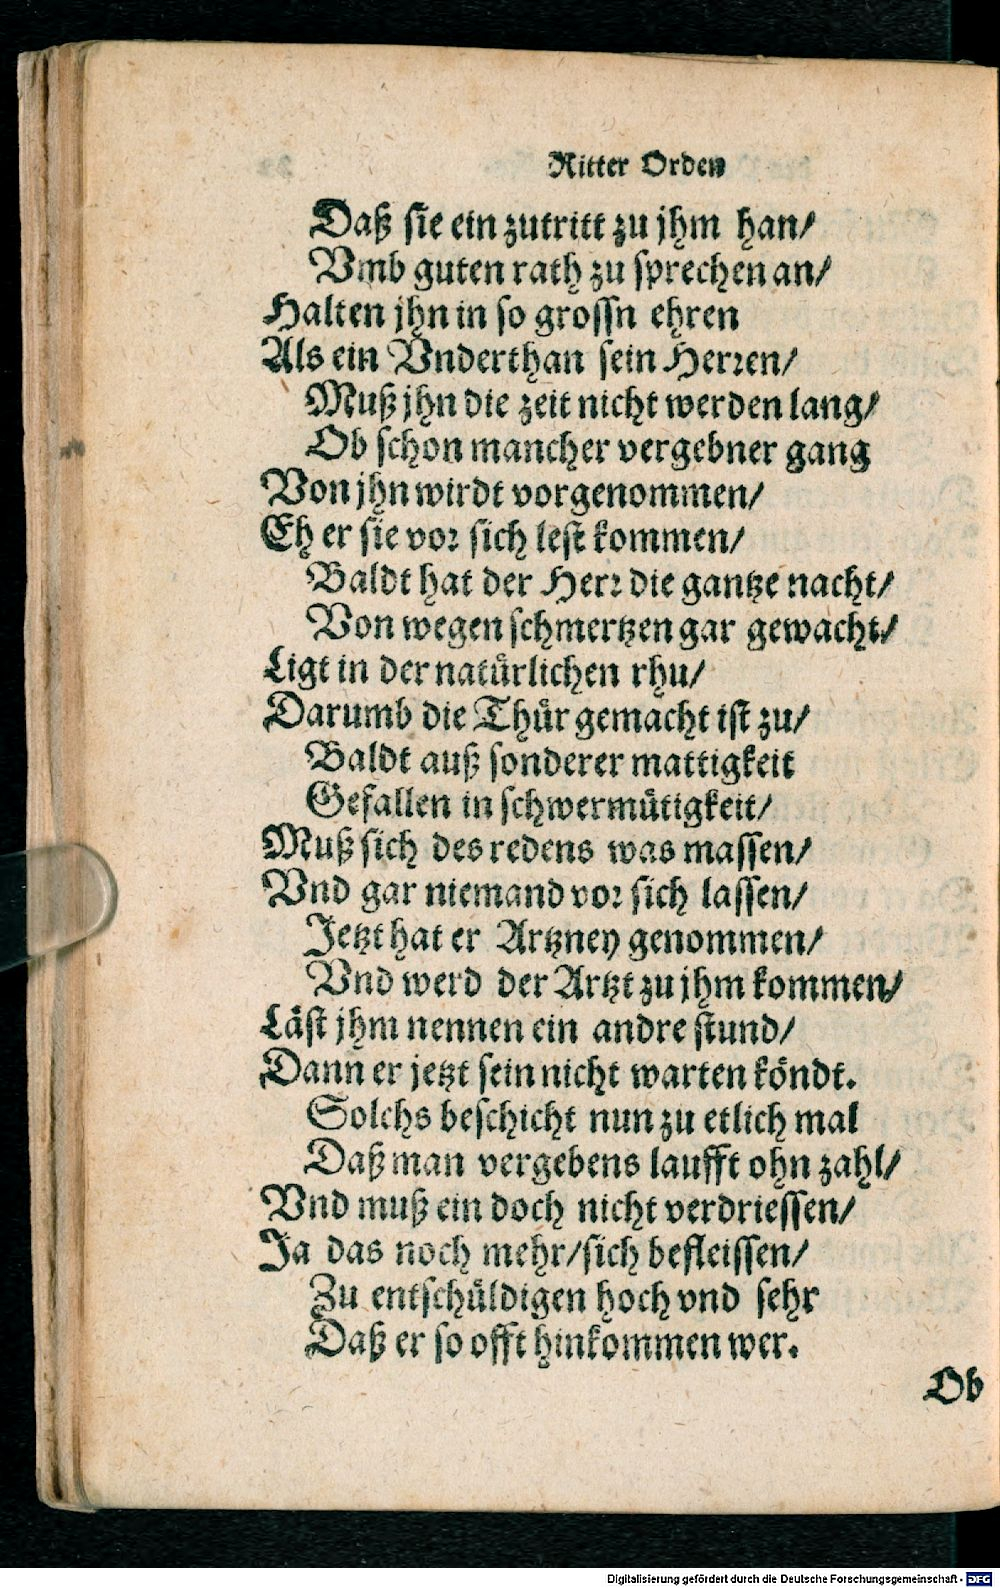 Ritter Orden
Daß sie ein zutritt zu jhm han/
Vmb guten rath zu sprechen an/
Halten jhn in so grossn ehren
Als ein Vnderthan sein Herren/
Muß jhn die zeit nicht werden lang/
Ob schon mancher vergebner gang
Von jhn wirdt vorgenommen/
Eh er sie vor sich lest kommen/
Baldt hat der Herr die gantze nacht/
Von wegen schmertzen gar gewacht/
Ligt in der natürlichen rhu/
Darumb die Thür gemacht ist zu/
Baldt auß sonderer mattigkeit
Gefallen in schwermütigkeit/
Muß sich des redens was massen/
Vnd gar niemand vor sich lassen/
Jetzt hat er Artzney genommen/
Vnd werd der Artzt zu jhm kommen/
Läst jhm nennen ein andre stund/
Dann er jetzt sein nicht warten köndt.
Solchs beschicht nun zu etlich mal
Daß man vergebens laufft ohn zahl/
Vnd muß ein doch nicht verdriessen/
Ja das noch mehr/sich befleissen/
Zu entschüldigen hoch vnd sehr
Daß er so offt hinkommen wer.
Ob
Digitalisierung gefördert durch die Deutsche Forschungsgemeinschaft - DFG